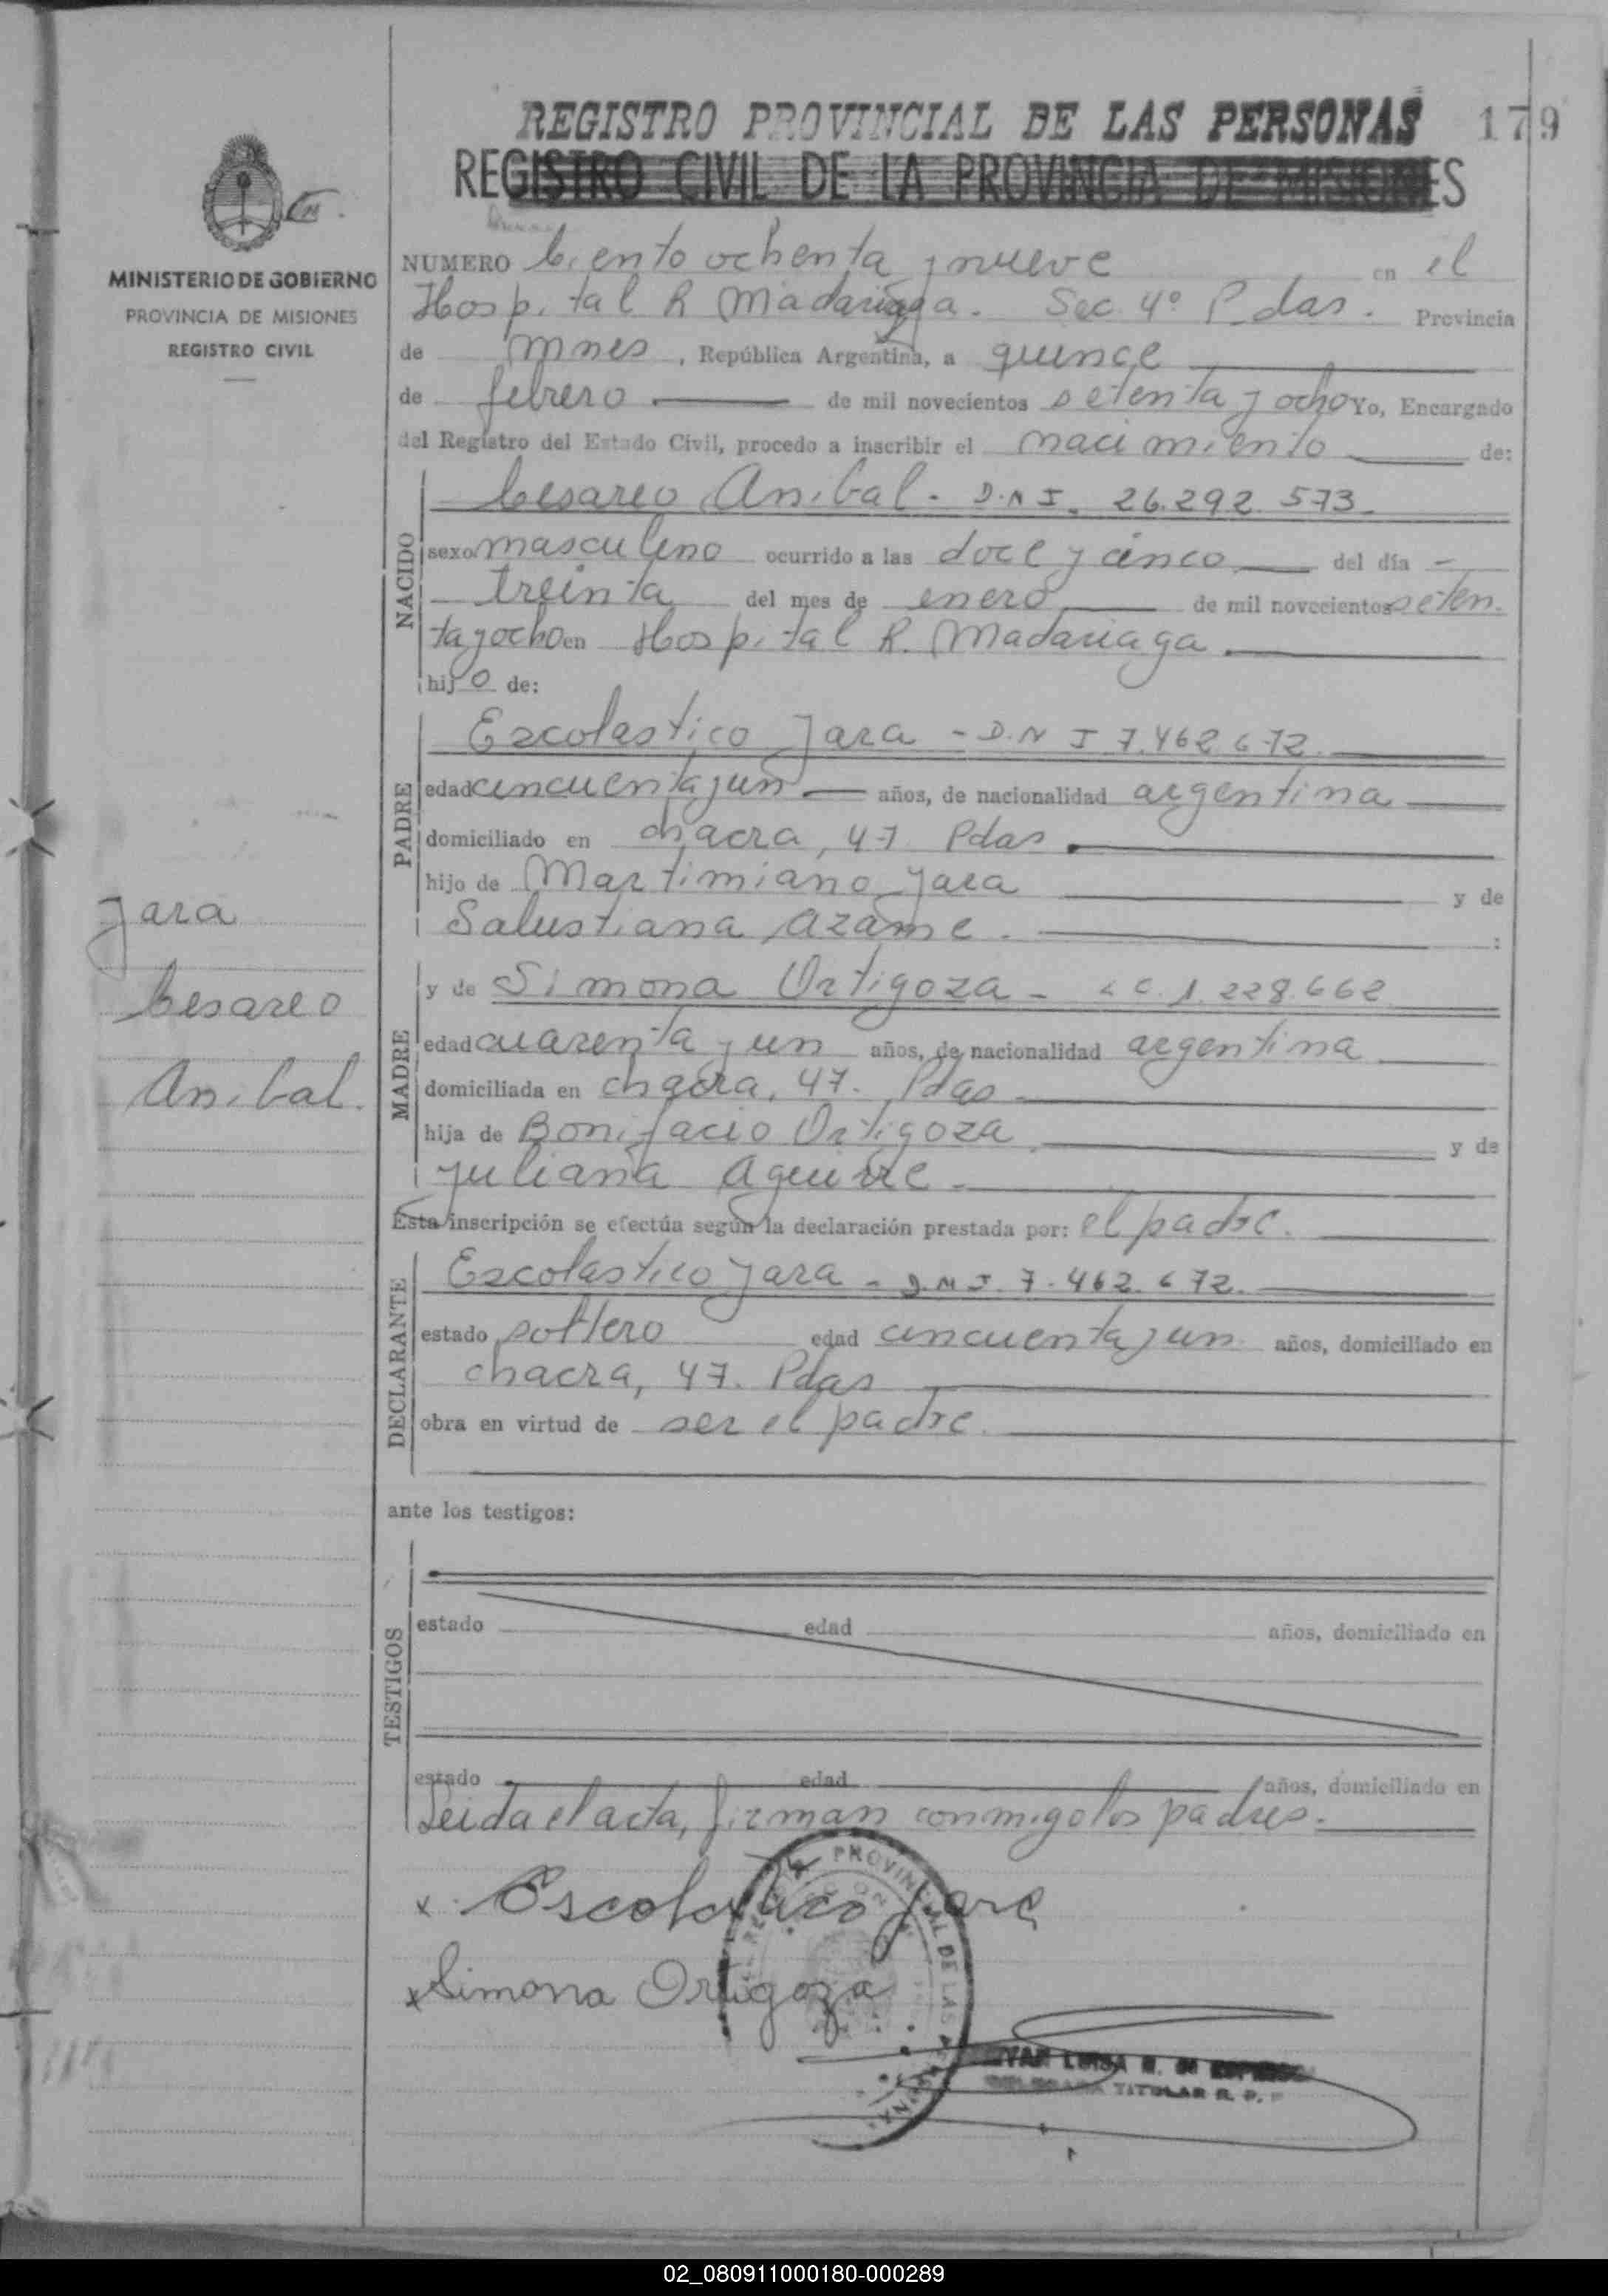 REGISTRO PROVINCIAL DE LAS PERSONAS 179
REGISTRO CIVIL DE LA PROVINCIA DE MISIONES
MINISTERIO DE GOBIERNO
PROVINCIA DE MISIONES
REGISTRO CIVIL
NUMERO Ciento ochenta y nueve en el
Hospital R Madariaga. Sec. 4º Pdas. Provincia
de mnes, República Argentina, a quince
de febrero de mil novecientos setenta y ocho Yo, Encargado
del Registro del Estado Civil, procedo a inscribir el nacimiento de:
NACIDO
Cesareo Anibal. D.N.I. 26.292.573.
sexo masculino ocurrido a las doce y cinco del día -
treinta del mes de enero de mil novecientos seten.
ta y ocho en Hospital R. Madariaga.
hijo de:
PADRE
Escolastico Jara - D.N I 7.462.672.
edad cincuenta y un años, de nacionalidad argentina
domiciliado en chacra, 47 Pdas.
hijo de Martimiano Jara y de
Salustiana Azame. :
Jara
Cesareo
Anibal.
MADRE
y de Simona Ortigoza - L C. 1.228.662
edad cuarenta y un años, de nacionalidad argentina
domiciliada en chacra, 47. Pdas.
hija de Bonifacio Ortigoza y de
Juliana Aguirre.
Esta inscripción se efectúa según la declaración prestada por: el padre.
DECLARANTE
Escolastico Jara - D.N.I. 7.462.672.
estado soltero edad cincuenta y un años, domiciliado en
chacra, 47. Pdas
obra en virtud de ser el padre.
ante los testigos:
TESTIGOS
estado edad años, domiciliado en
estado edad años, domiciliado en
Leida el acta, firman conmigo los padres.
x Escolastico Jara
x Simona Ortigoza
PROVINCIAL DE LAS
LUISA
TITULAR R. P.
02_080911000180-000289